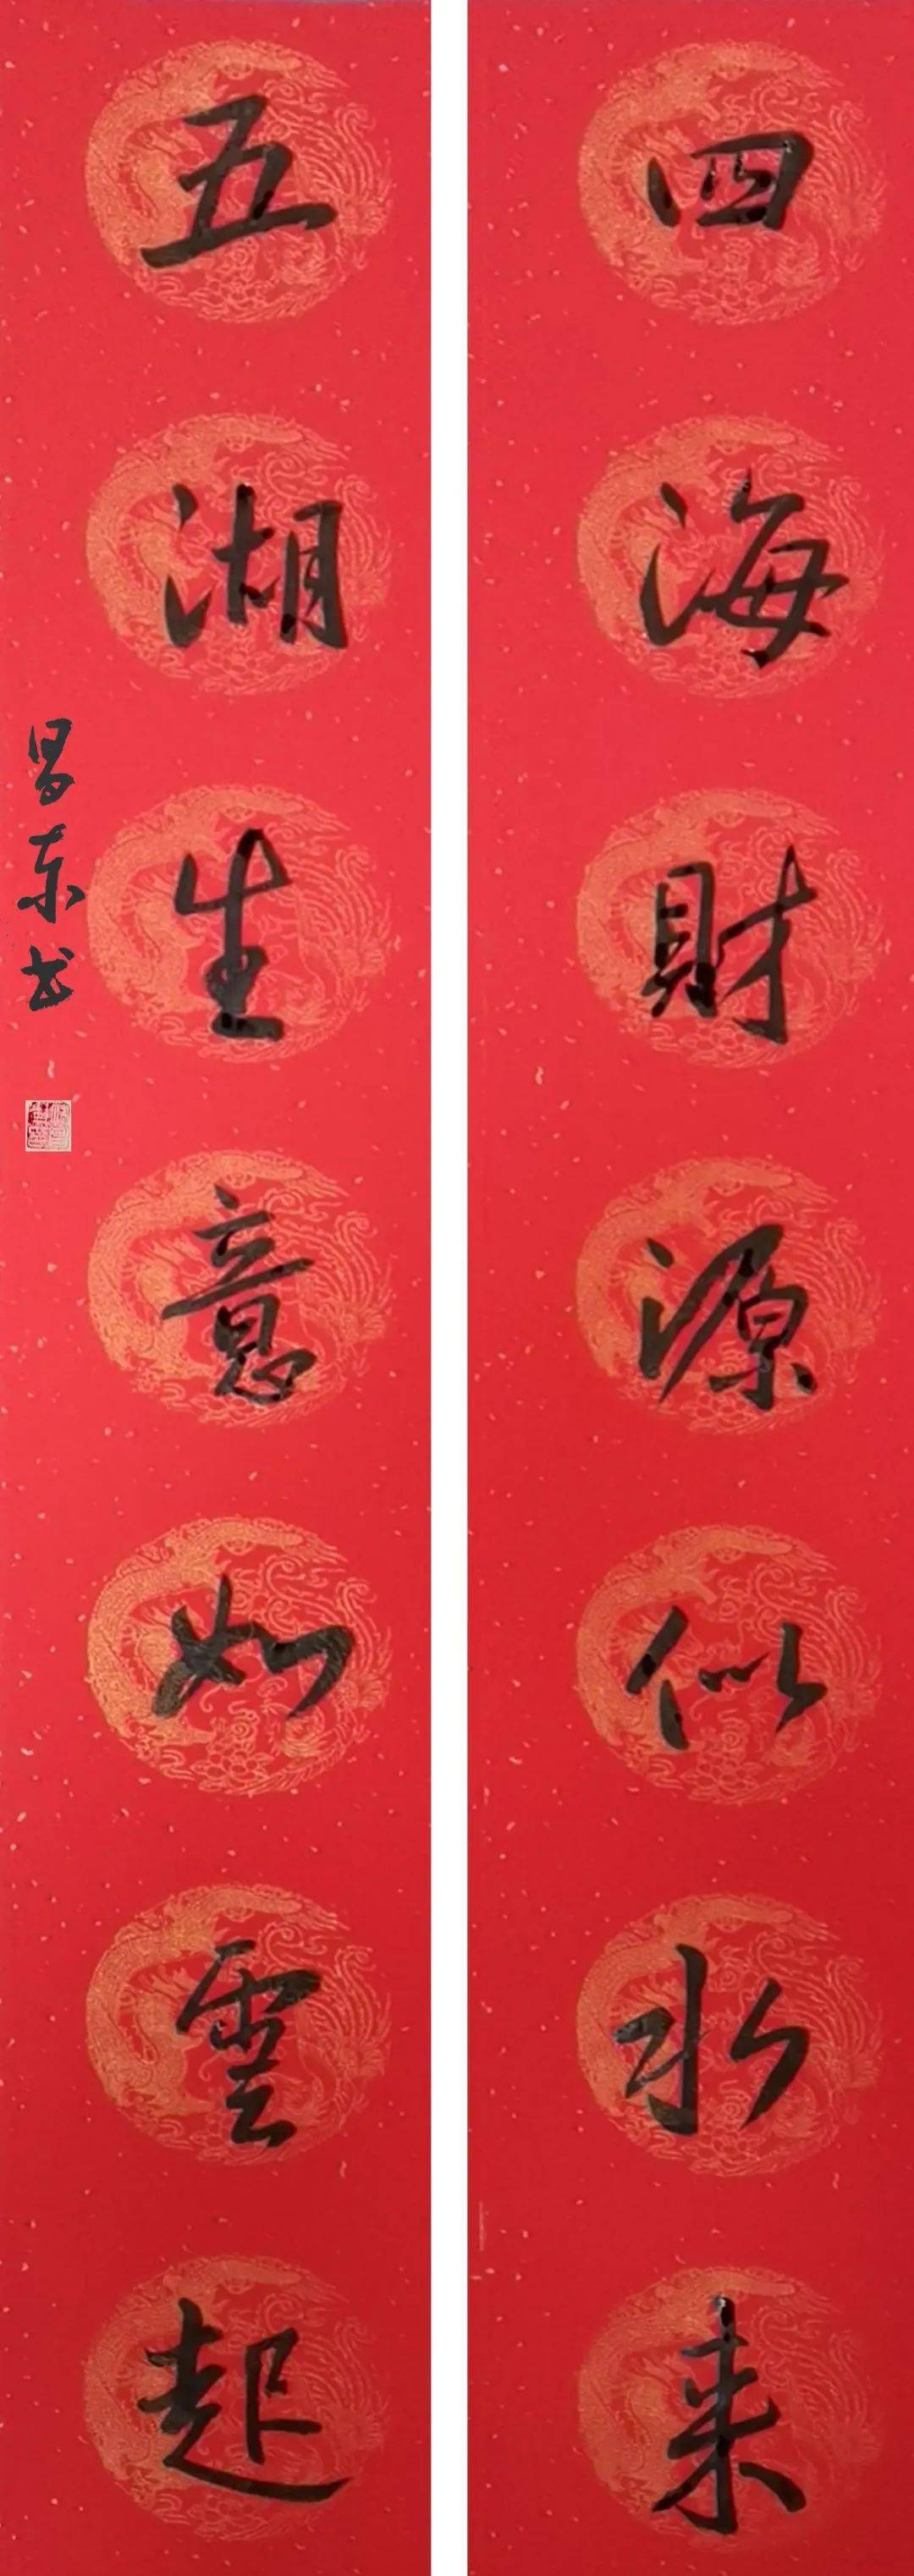 四海財源似水来
五湖生意如雲起
昌东书